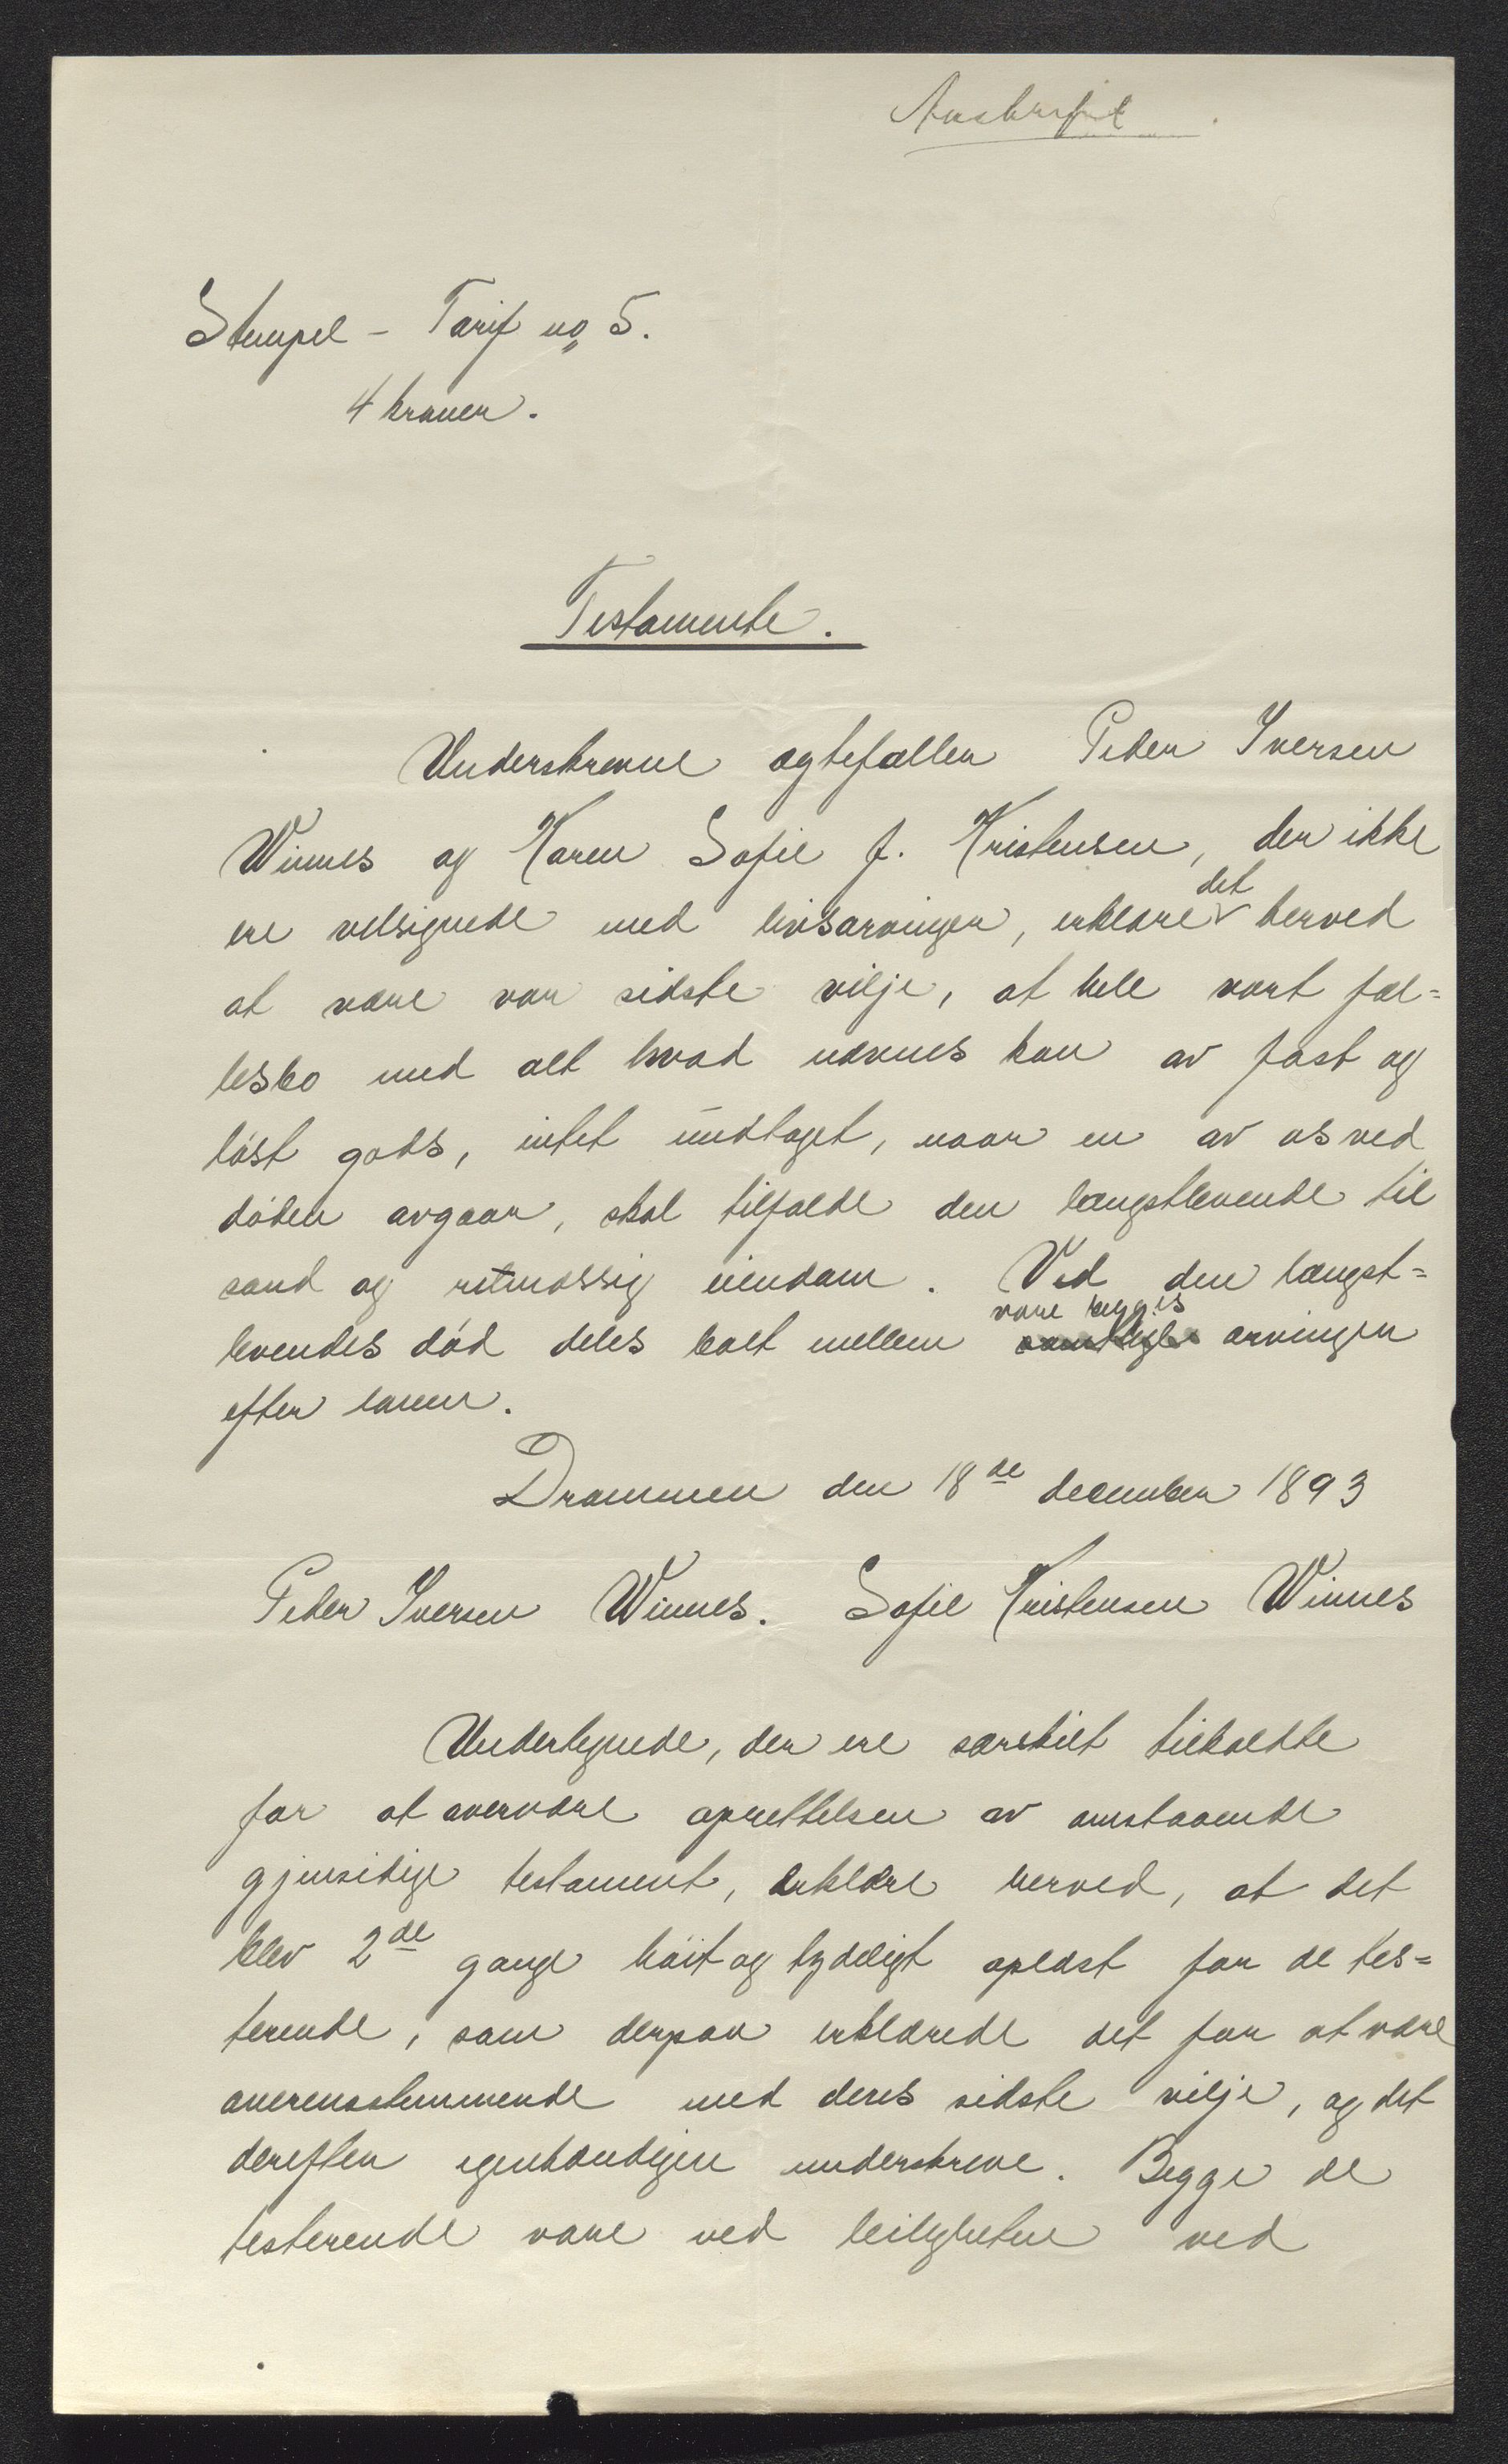 Avskrift.
Stempel - Tarif no 5.
4 kroner.
Testamente.
Underskrevne ægtefæller Peder Iversen
Winnes og Karen Sofie f. Kristensen, der ikke
ere velsignede med livsarvinger, erklære det herved
at være vor sidste vilje, at hele vort fæl=
lesbo med alt hvad nævnes kan av fast og
løst gods, intet undtaget, naar en av os ved
døden avgaar, skal tilfalde den længstlevende til
sand og retmæssig eiendom. Ved den længst=
levendes død deles boet mellem vore begges arvinger
efter loven.
Drammen den 18de december 1893
Peder Iversen Winnes. Sofie Kristensen Winnes
Undertegnede, der ere særskilt tilkaldte
for at overvære oprettelsen av omstaaende
gjensidige testament, erklære herved, at det
blev 2de gange høit og tydeligt oplæst for de tes=
terende, som derpaa erklærede det for at være
overensstemmende med deres sidste vilje, og det
derefter egenhændigen underskreve. Begge de
testerende vare ved leiligheten ved